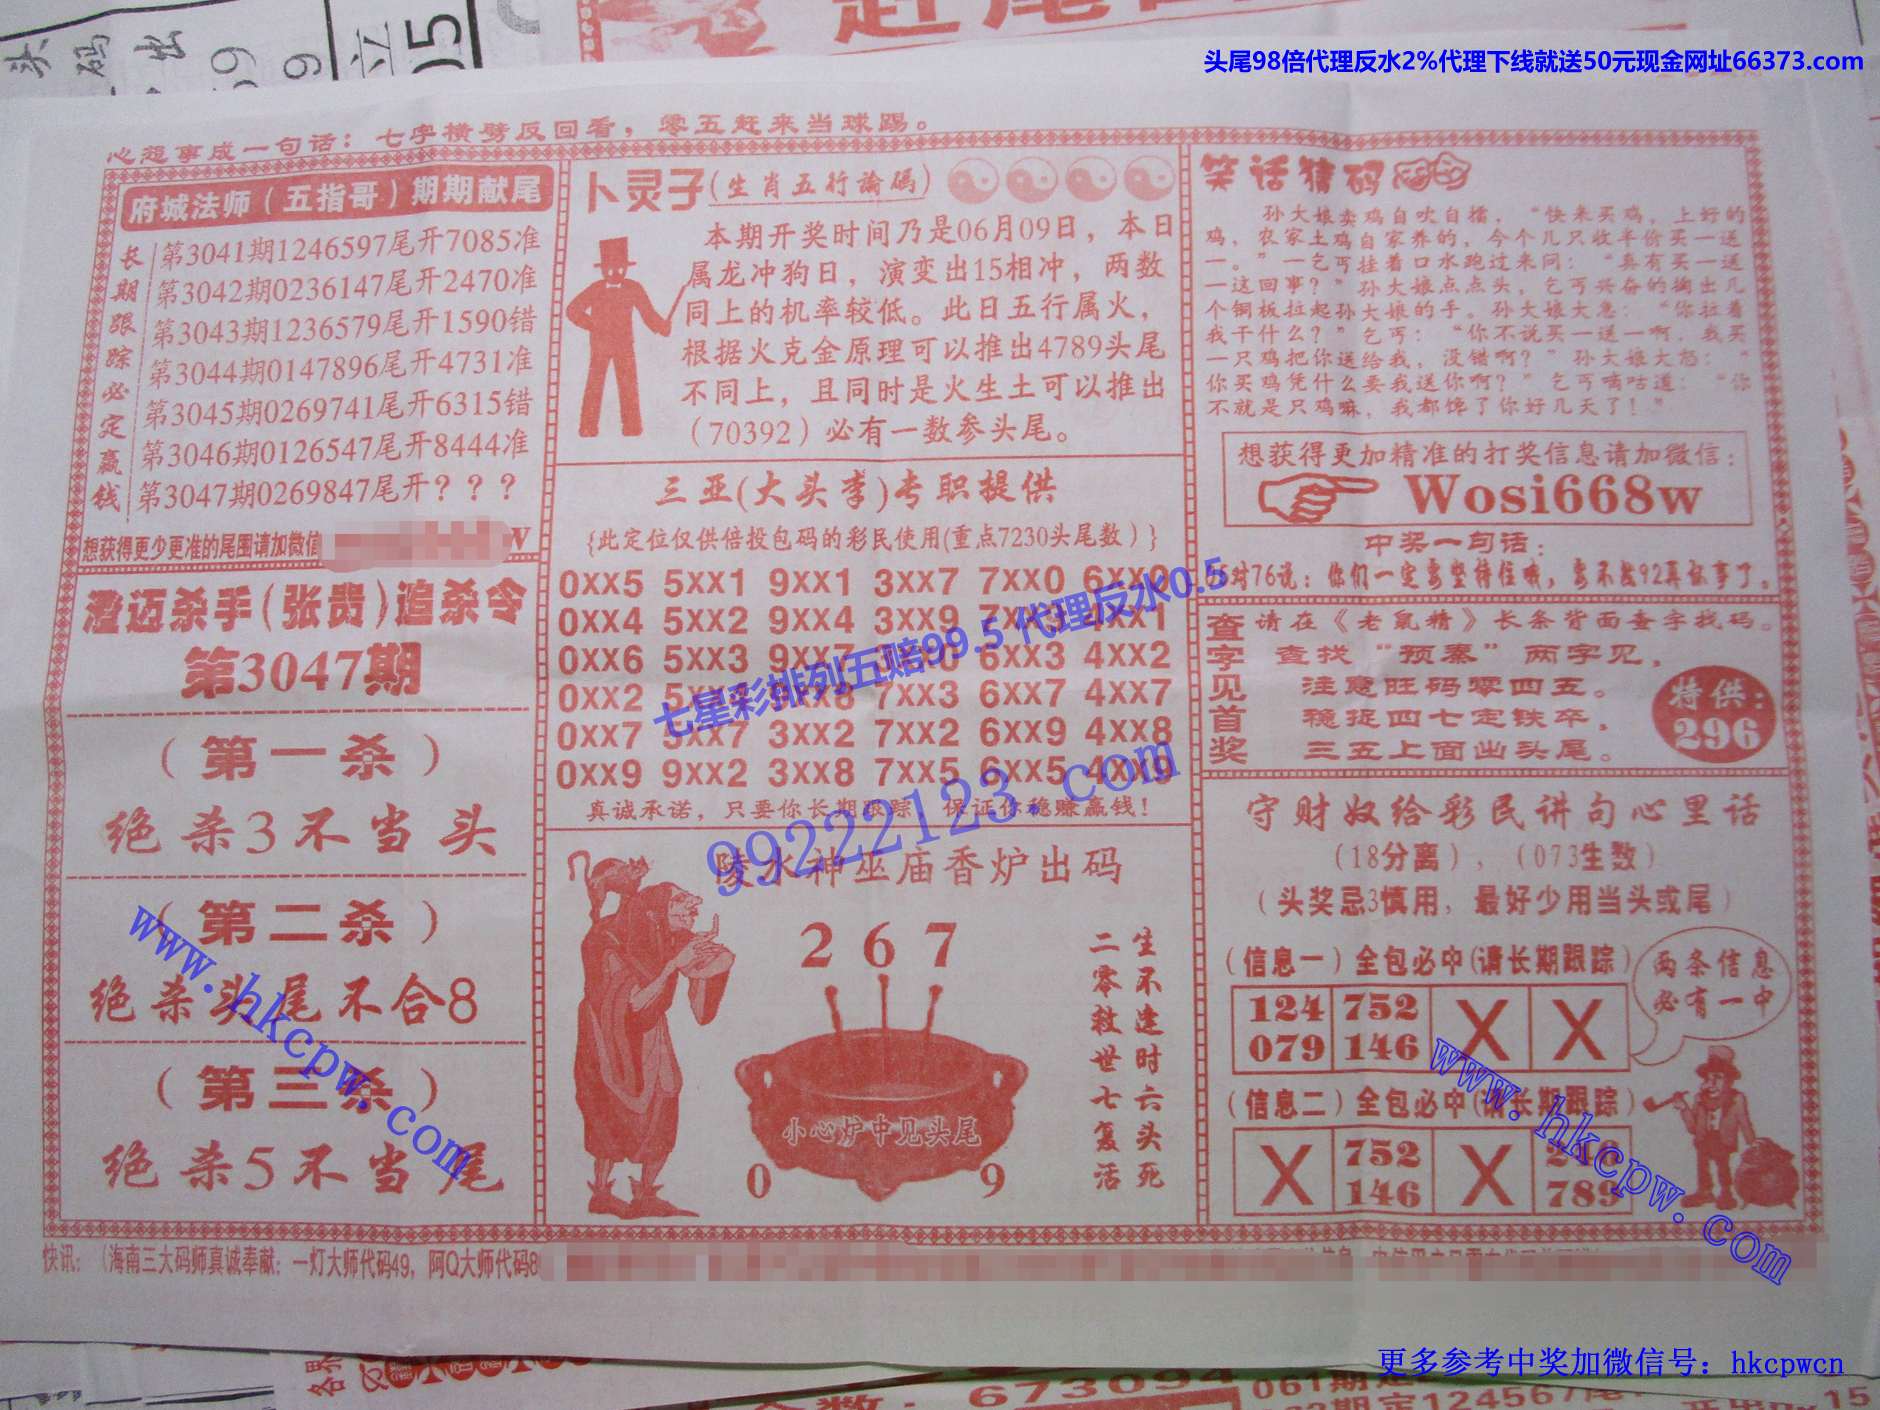 头尾98倍代理反水2%代理下线就送50元现金网址66373.com
头码出
心想事成一句话：七字横劈反回看，零五赶来当球踢。
府城法师（五指哥）期期献尾
长期跟踪必定赢钱
第3041期1246597尾开7085准
第3042期0236147尾开2470准
第3043期1236579尾开1590错
第3044期0147896尾开4731准
第3045期0269741尾开6315错
第3046期0126547尾开8444准
第3047期0269847尾开？？？
想获得更少更准的尾围请加微信
澄迈杀手(张贵)追杀令
第3047期
（第一杀）
绝杀3不当头
（第二杀）
绝杀头尾不合8
（第三杀）
绝杀5不当尾
卜灵子(生肖五行論碼)
本期开奖时间乃是06月09日，本日
属龙冲狗日，演变出15相冲，两数
同上的机率较低。此日五行属火，
根据火克金原理可以推出4789头尾
不同上，且同时是火生土可以推出
（70392）必有一数参头尾。
三亚(大头李)专职提供
{此定位仅供倍投包码的彩民使用(重点7230头尾数）}
0xx5 5xx1 9xx1 3xx7 7xx0 6xx0
0xx4 5xx2 9xx4 3xx9 7xx3 4xx1
0xx6 5xx3 9xx7 6xx3 4xx2
0xx2 7xx3 6xx7 4xx7
0xx7 5xx7 3xx2 7xx2 6xx9 4xx8
0xx9 9xx2 3xx8 7xx5 6xx5 4xx9
真诚承诺，只要你长期跟踪 保证你稳赚赢钱！
七星彩排列五赔99.5 代理反水0.5
99222123.com
陵水神巫庙香炉出码
2 6 7
小心炉中见头尾
0 9
生不逢时六头死
二零救世七复活
笑话猜码
孙大娘卖鸡自吹自擂，“快来买鸡，上好的
鸡，农家土鸡自家养的，今个几只收半价买一送
一。”一乞丐挂着口水跑过来问：“真有买一送
一这回事？”孙大娘点点头，乞丐兴奋的掏出几
个铜板拉起孙大娘的手。孙大娘大急：“你拉着
我干什么？”乞丐：“你不说买一送一啊，我买
一只鸡把你送给我，没错啊？”孙大娘大怒：“
你买鸡凭什么要我送你啊？”乞丐嘀咕道：“你
不就是只鸡嘛，我都馋了你好几天了！”
想获得更加精准的打奖信息请加微信：
Wosi668w
中奖一句话：
对76说：你们一定要坚持住哦，要不然92再做事了。
查字见首奖
请在《老鼠精》长条背面查字找码。
查找“预寨”两字见，
注意旺码零四五。
稳捉四七定铁卒，
三五上面出头尾。
特供：
296
守财奴给彩民讲句心里话
（18分离），（073生数）
（头奖忌3慎用，最好少用当头或尾）
（信息一）全包必中(请长期跟踪)
124 752 X X
079 146
两条信息
必有一中
（信息二）全包必中(请长期跟踪)
X 752 X 246
146 789
www.hkcpw.com
www.hkcpw.com
快讯：（海南三大码师真诚奉献：一灯大师代码49，阿Q大师代码8
更多参考中奖加微信号：hkcpwcn
673094